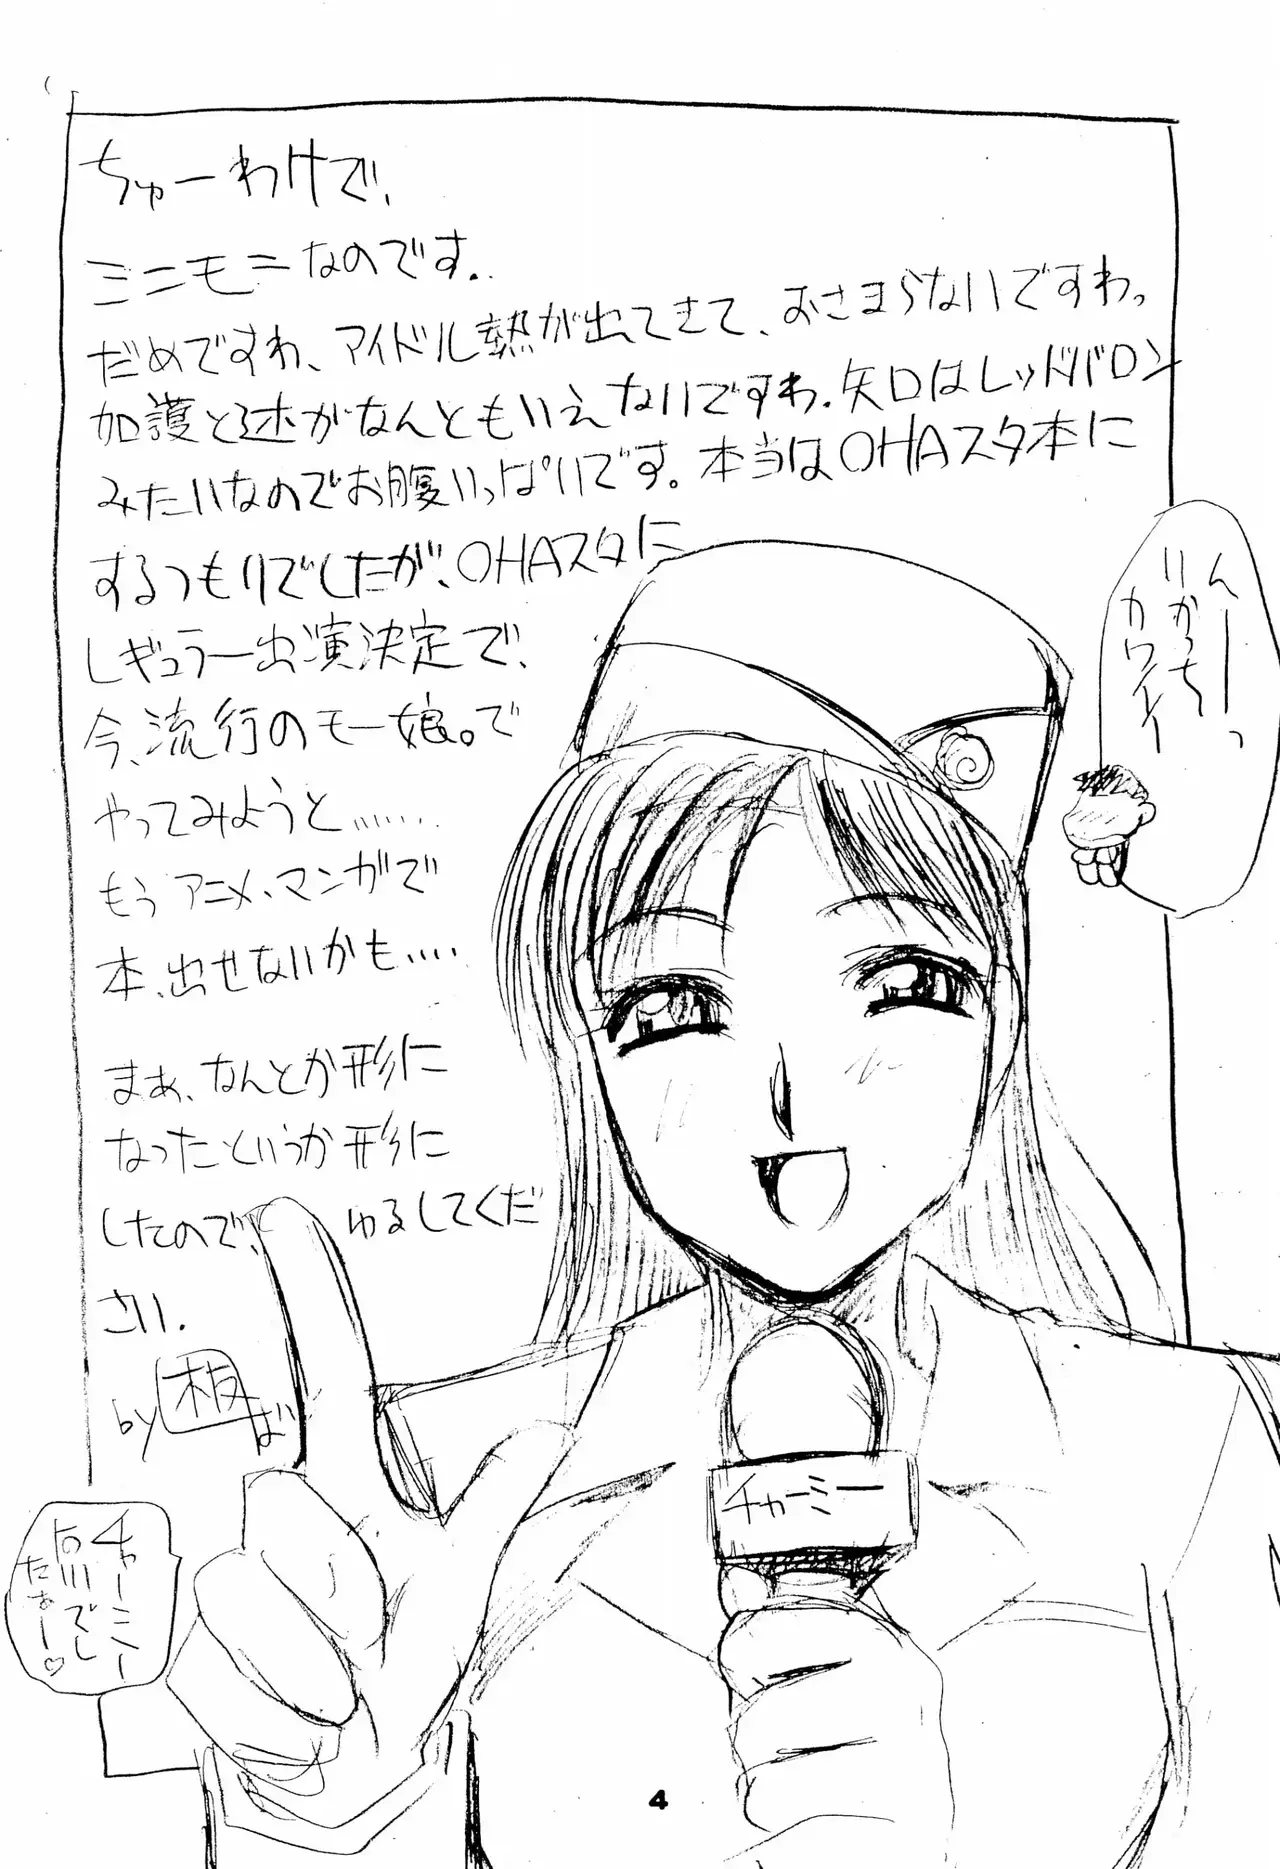 ちゅーわけで、
ミニモニなのです．
だめですわ、アイドル熱が出てきて、おさまらないですわっ
加護と辻がなんともいえないですわ．矢口はレッドバロン
みたいなのでお腹いっぱいです。本当はOHAスタ本に
するつもりでしたが、OHAスタに
レギュラー出演決定で、
今、流行のモー娘。で
やってみようと……
もうアニメ、マンガで
本、出せないかも‥‥
まぁ、なんとか形に
なったというか形に
したので、ゆるしてくだ
さい．
by 板ば
んーーっ
りかっち
カワイイ
チャーミー
チャーミー
石川でし
たぁー♡
4